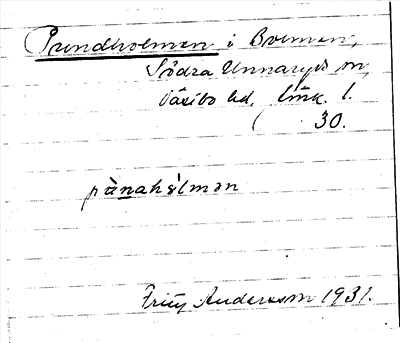 Prundholmen i Bolmen,
Södra Unnaryds sn,
Västbo hd, Link. l.
30.
pànahȯlmən
Frity Andersson 1931.